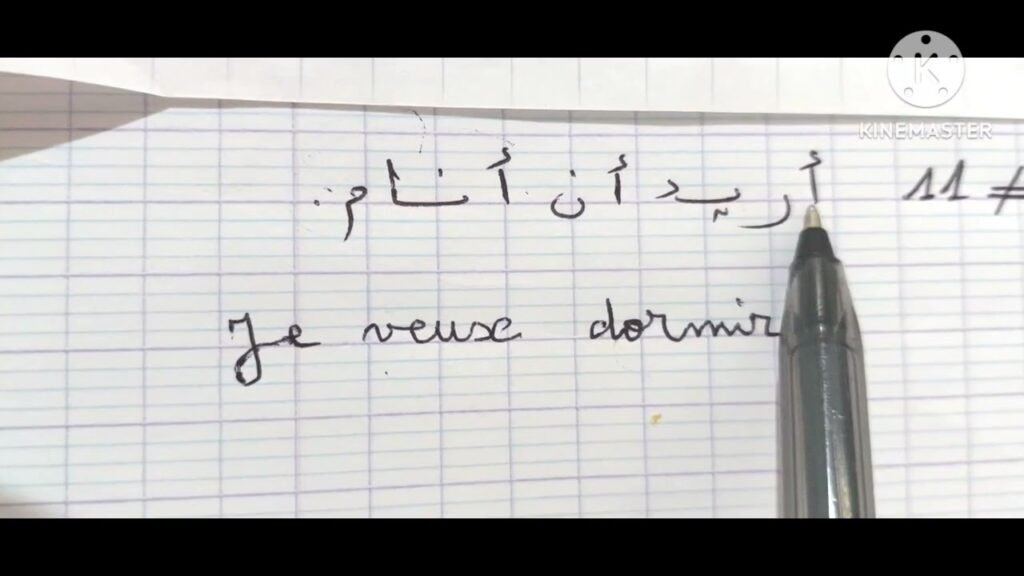 KINEMASTER
11 # أريد أن أنام.
Je veux dormir